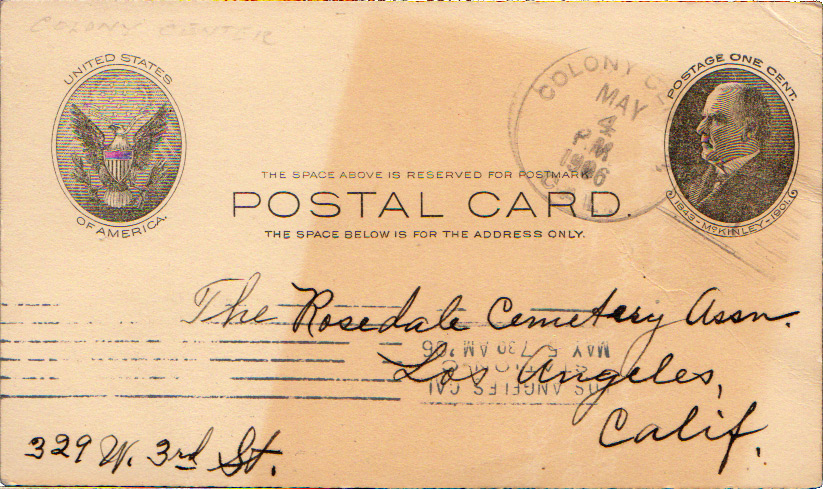 COLONY CENTER
UNITED STATES
OF AMERICA.
COLONY
MAY
4
P.M
1906
CAL
POSTAGE ONE CENT.
1843-McKINLEY-1901.
THE SPACE ABOVE IS RESERVED FOR POSTMARK
POSTAL CARD.
THE SPACE BELOW IS FOR THE ADDRESS ONLY.
The Rosedale Cemetery Assn.
Los Angeles,
Calif.
329 W. 3rd St.
LOS ANGELES CAL
MAY 5 730 AM '06